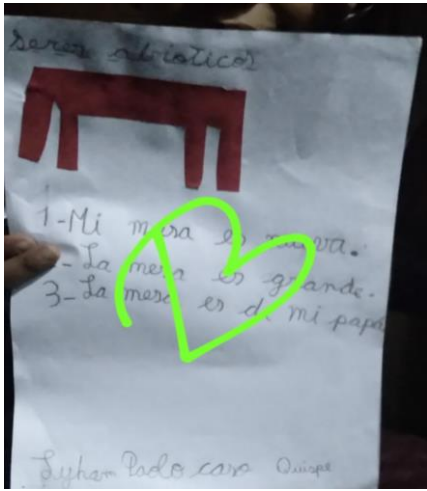 seres abioticos
1-Mi mesa es nueva.
- La mesa es grande.
3- La mesa es de mi papá
Lyham Pado caso Quispe